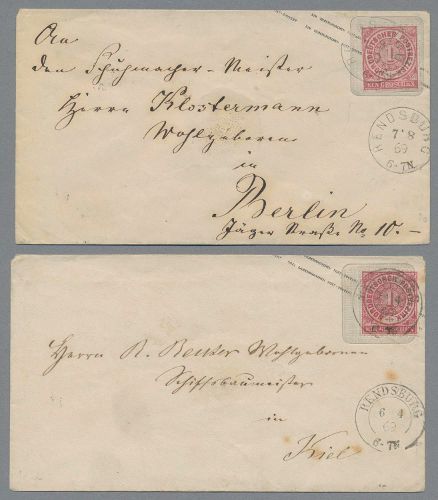 An
den Schuhmacher-Meister
Herrn Klostermann
Wohlgeboren
in
Berlin
Jäger Straße No 10.-
NORDDEUTSCHER POSTBEZIRK
1
EIN GROSCHEN
RENDSBURG
7 8
69
6-7N
Herrn R. Wohlgeboren
Schiffsbaumeister
in
Kiel
NORDDEUTSCHER POSTBEZIRK
1
RENDSBURG
6 4
69
6-7N